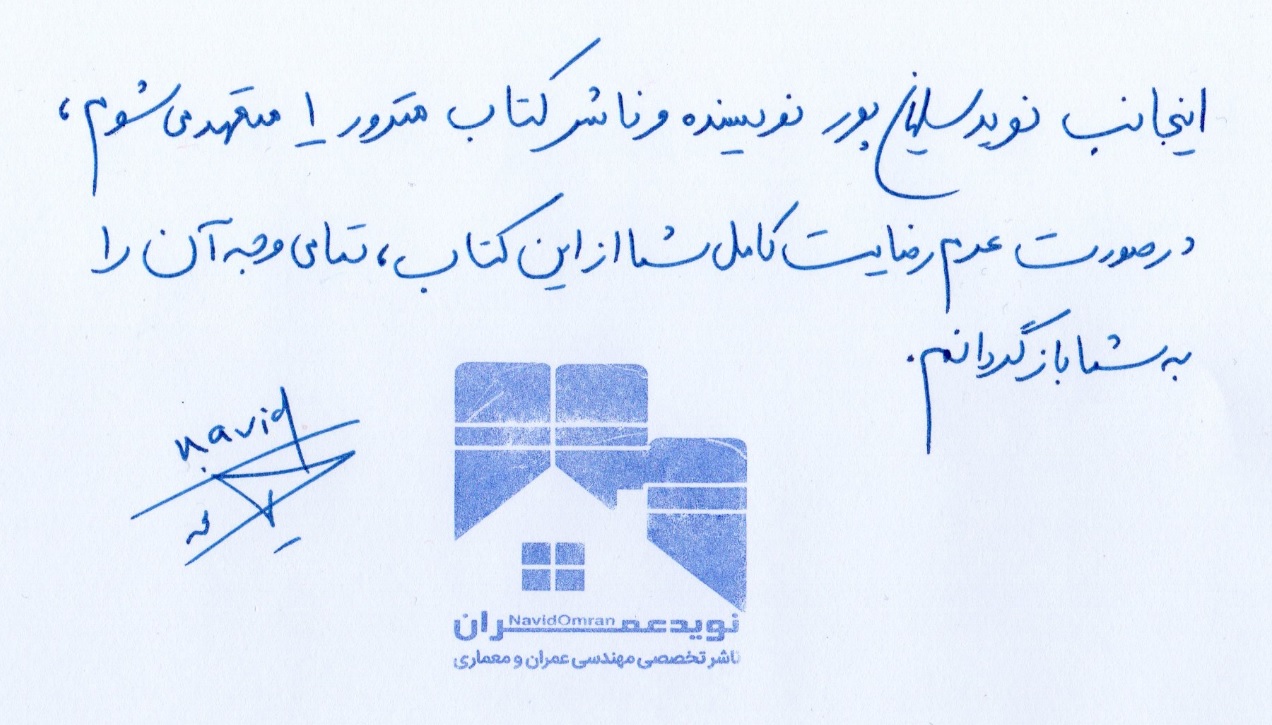 اینجانب نوید سلیمان پور نویسنده و ناشر کتاب مترور 1 متعهد می شوم،
در صورت عدم رضایت کامل شما از این کتاب، تمامی وجه آن را
به شما باز گردانم.
navid
نویدعمران
NavidOmran
ناشر تخصصی مهندسی عمران و معماری